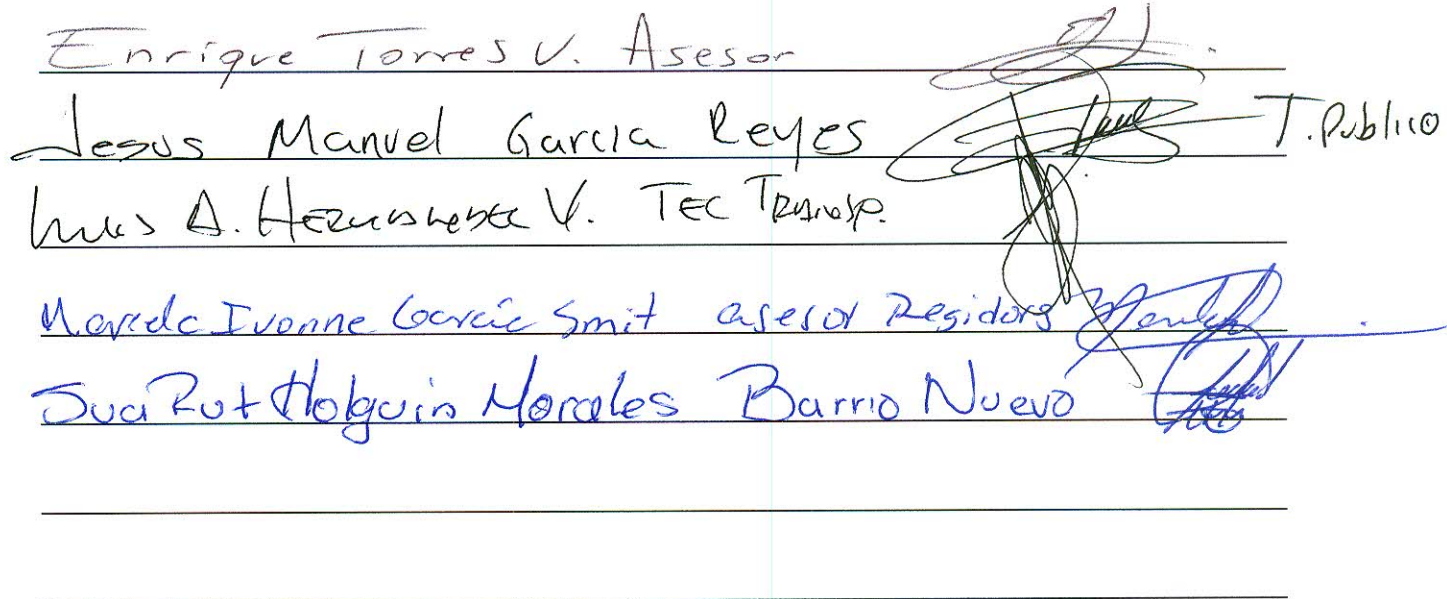 Enrique Torres V. Asesor
Jesus Manuel Garcia Reyes T. Publico
Luis A. V. TEC Transp.
Ivonne García Smit asesor Regidora
Rut Holguin Morales Barrio Nuevo